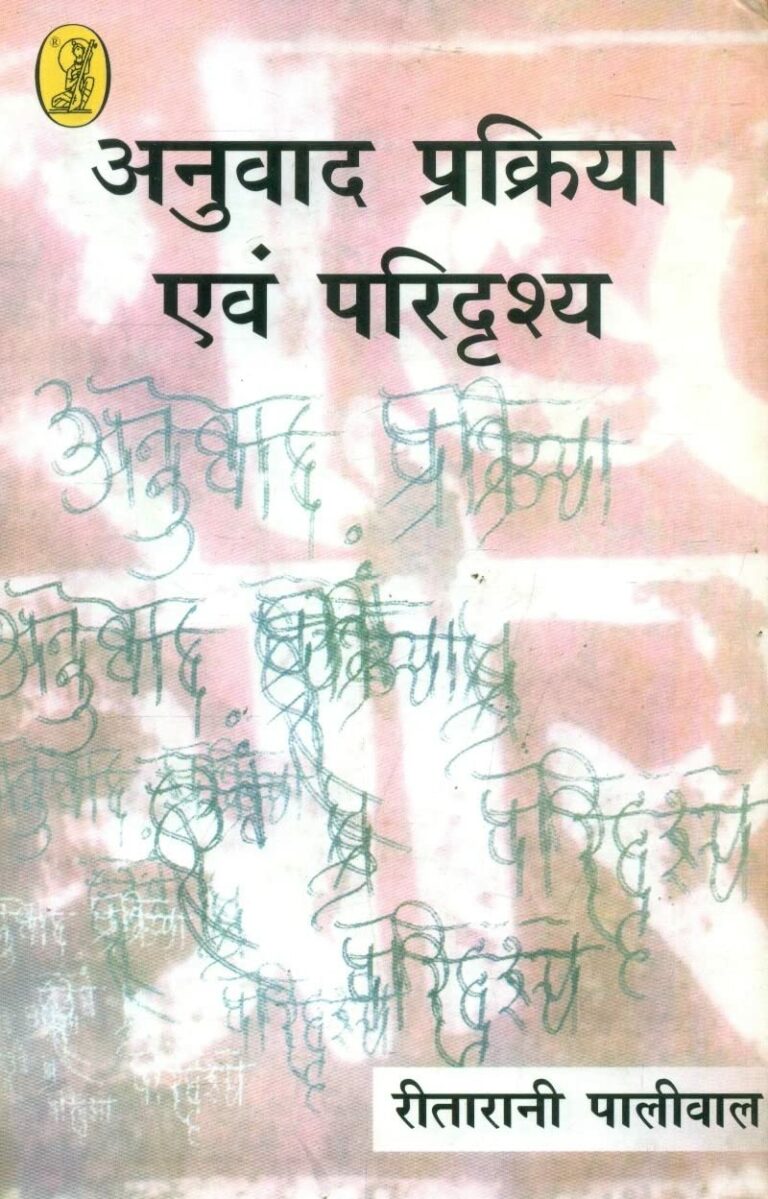 अनुवाद प्रक्रिया
एवं परिदृश्य
अनुवाद प्रक्रिया
अनुवाद
परिदृश्य
परिदृश्य
परिदृश्य
रीतारानी पालीवाल